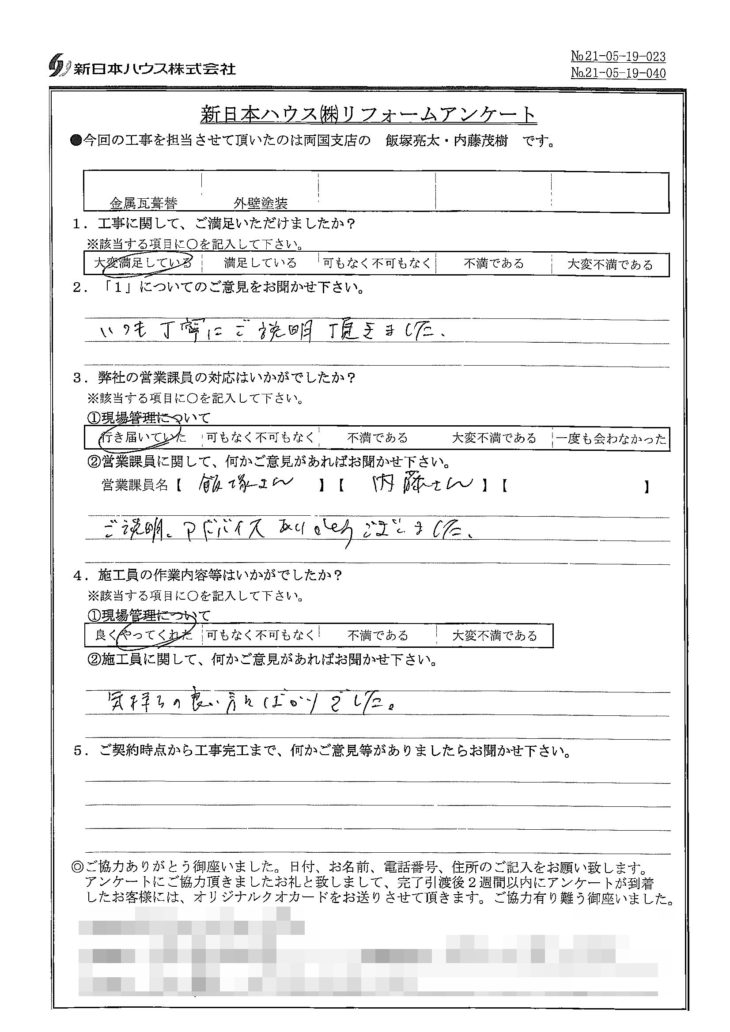 新日本ハウス株式会社
№21-05-19-023
№21-05-19-040
新日本ハウス㈱リフォームアンケート
●今回の工事を担当させて頂いたのは両国支店の 飯塚亮太・内藤茂樹 です。
金属瓦葺替 外壁塗装
1．工事に関して、ご満足いただけましたか？
※該当する項目に○を記入して下さい。
大変満足している 満足している 可もなく不可もなく 不満である 大変不満である
2．「1」についてのご意見をお聞かせ下さい。
いつも丁寧にご説明頂きました。
3．弊社の営業課員の対応はいかがでしたか？
※該当する項目に○を記入して下さい。
①現場管理について
行き届いていた 可もなく不可もなく 不満である 大変不満である 一度も会わなかった
②営業課員に関して、何かご意見があればお聞かせ下さい。
営業課員名【 飯塚さん 】【 内藤さん 】【 】
ご説明、アドバイスありがとうございました。
4．施工員の作業内容等はいかがでしたか？
※該当する項目に○を記入して下さい。
①現場管理について
良くやってくれた 可もなく不可もなく 不満である 大変不満である
②施工員に関して、何かご意見があればお聞かせ下さい。
気持ちの良い方ばかりでした。
5．ご契約時点から工事完工まで、何かご意見等がありましたらお聞かせ下さい。
◎ご協力ありがとう御座いました。日付、お名前、電話番号、住所のご記入をお願い致します。
アンケートにご協力頂きましたお礼と致しまして、完了引渡後2週間以内にアンケートが到着
したお客様には、オリジナルクオカードをお送りさせて頂きます。ご協力有り難う御座いました。